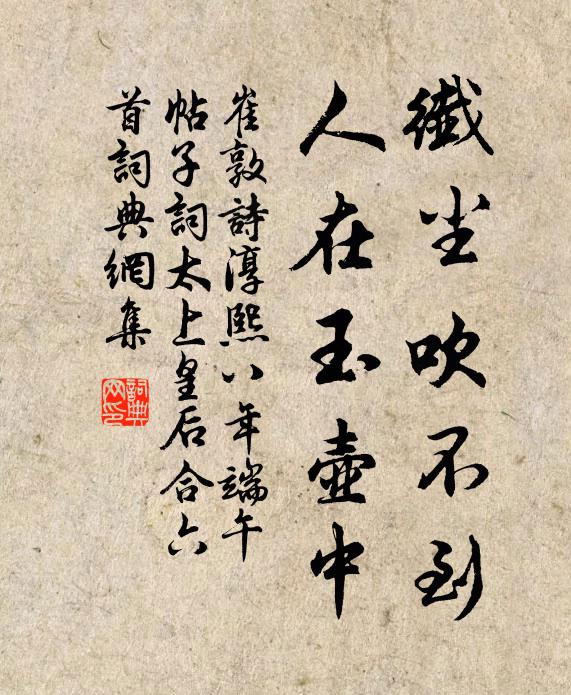 纖尘吹不到
人在玉壷中
崔敦詩淳熙八年端午
帖子詞太上皇后合六
首詞典網集
詞典
网印